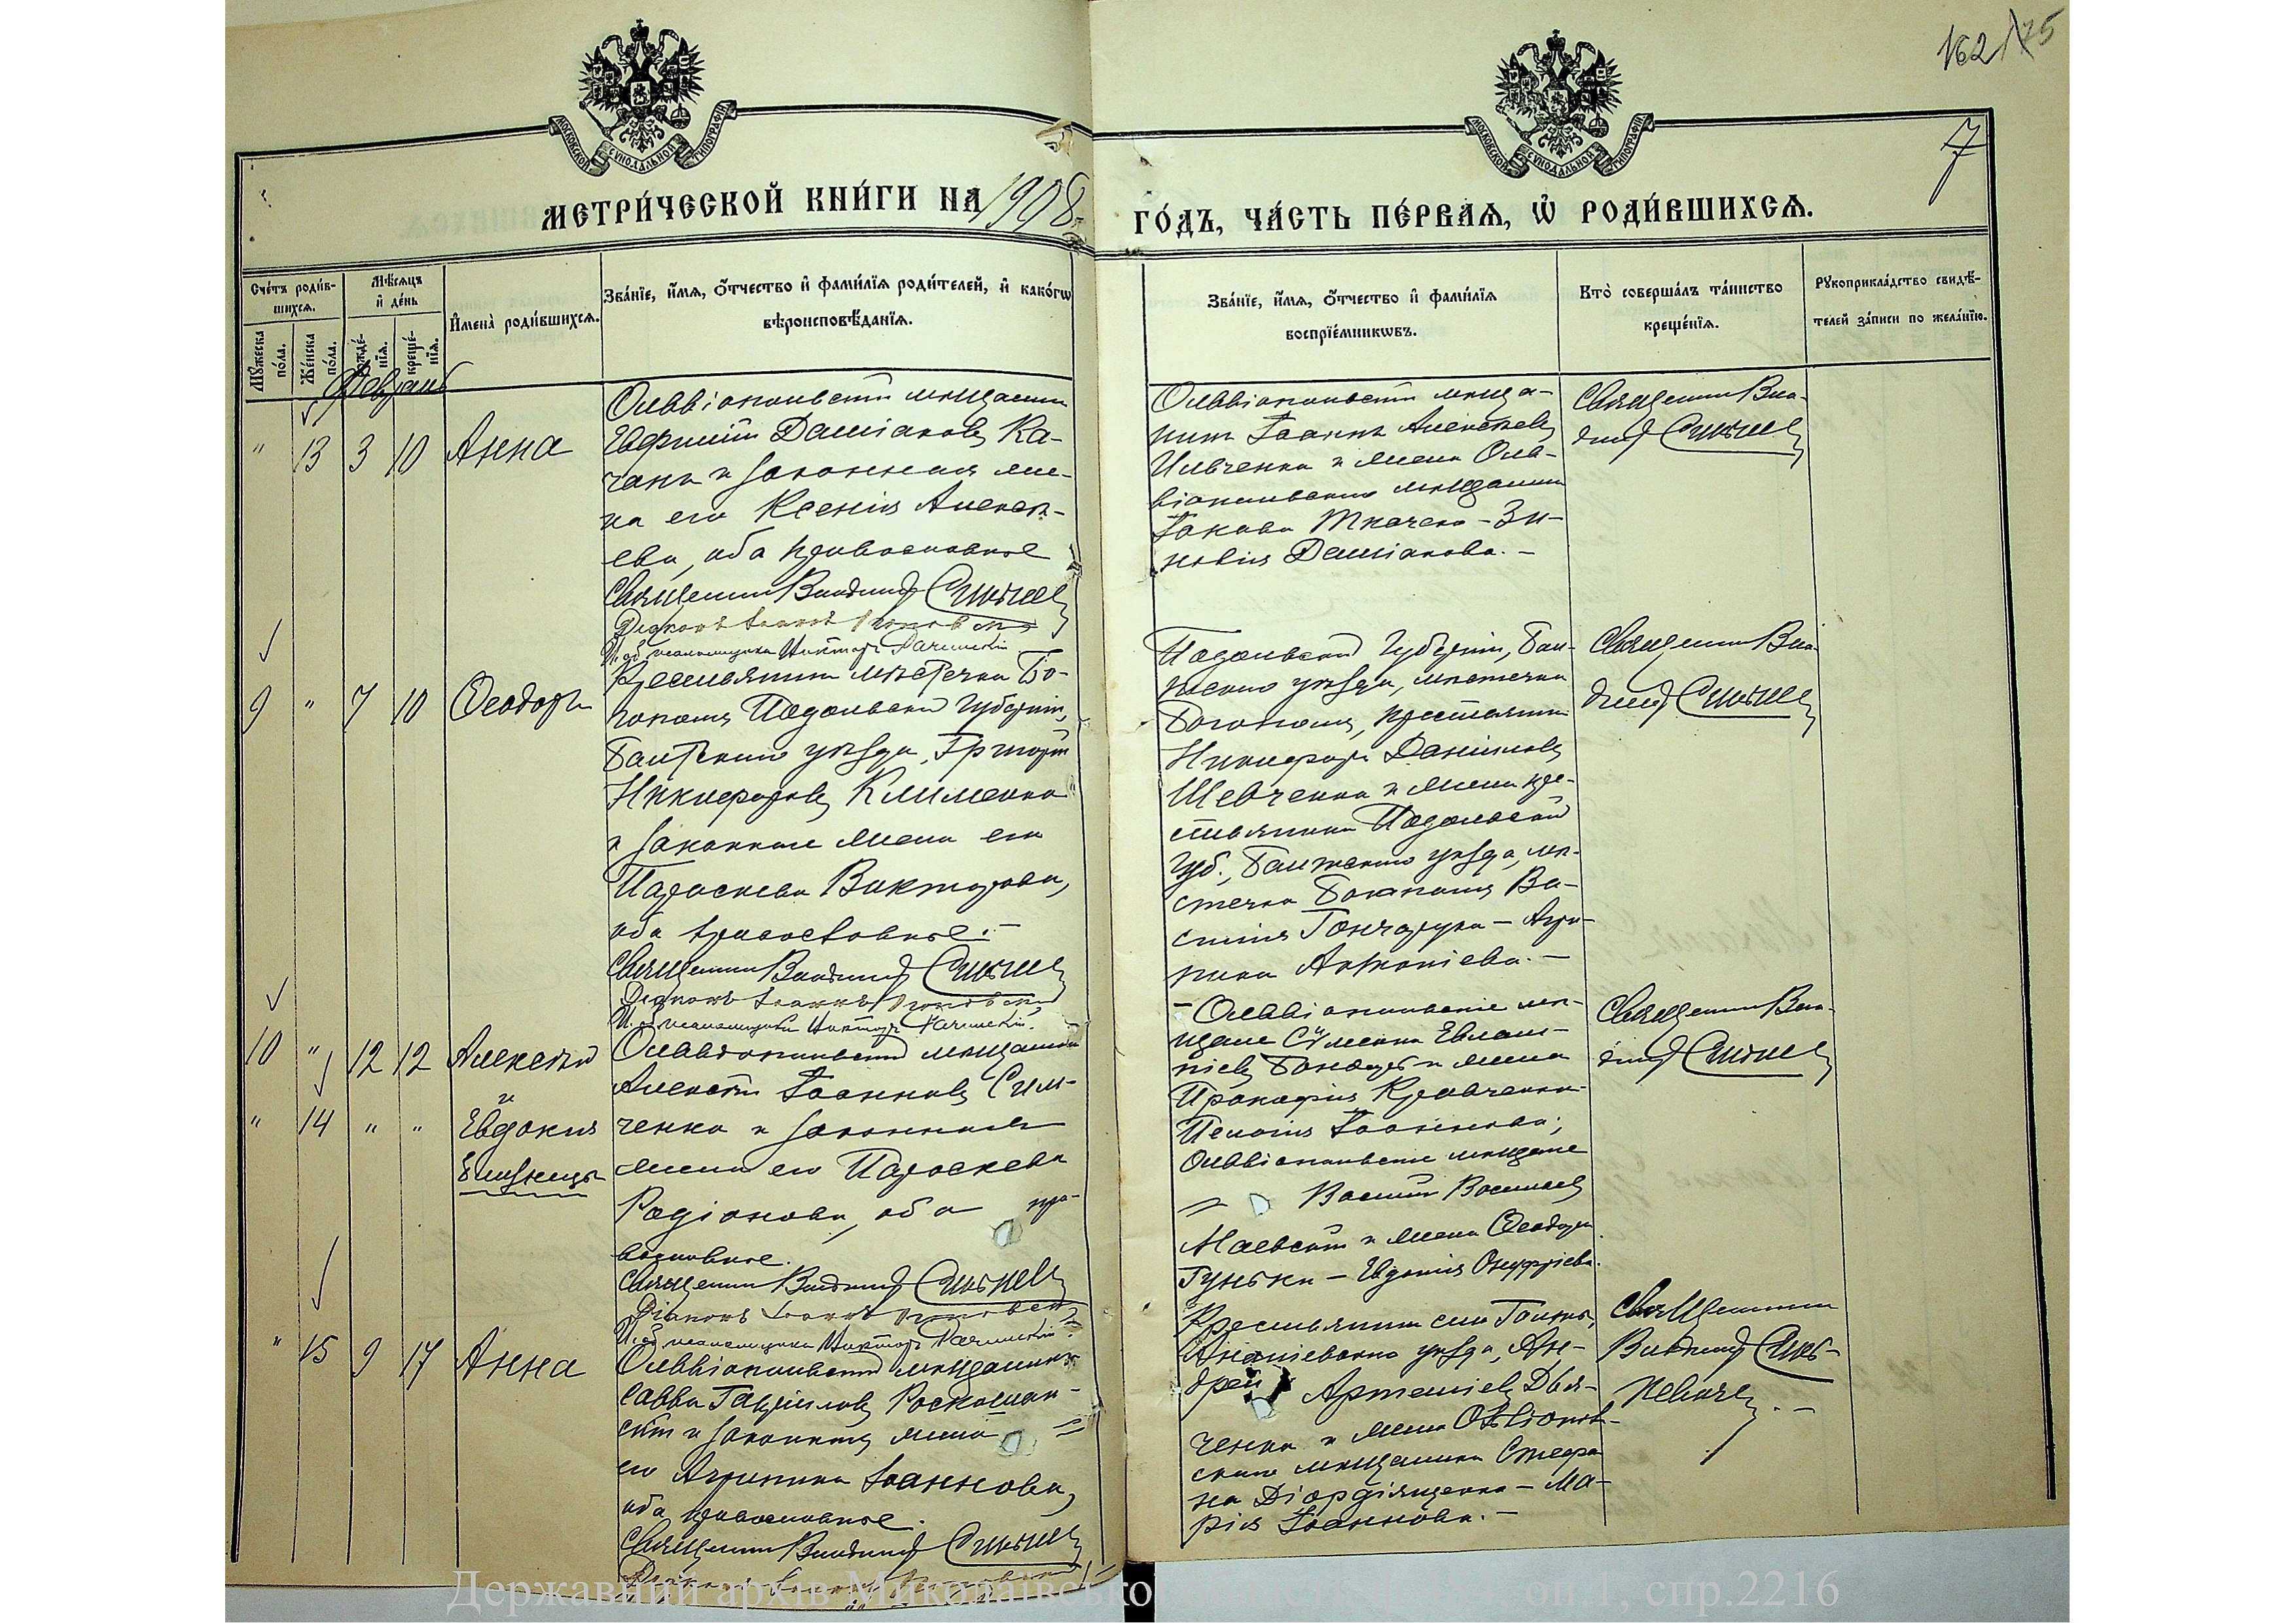 162 175
7
МОСКОВСКОЙ СѴНОДАЛЬНОЙ ТИПОГРАФІИ
МОСКОВСКОЙ СѴНОДАЛЬНОЙ ТИПОГРАФІИ
МЕТРИ́ЧЕСКОЙ КНИ́ГИ НА 1908 ГО́ДЪ, ЧА́СТЬ ПЕ́РВАѦ, Ѡ҆ РОДИ́ВШИХСѦ.
Сче́тъ роди́в-
шихсѧ.
Мꙋ́жеска по́ла.
Же́нска по́ла.
Мѣ́сѧцъ
и҆ де́нь
рожде́-
нїѧ.
креще́-
нїѧ.
И҆мена̀ роди́вшихсѧ.
Зва́нїе, и҆́мѧ, ѻ҆́тчество и҆ фами́лїѧ роди́телей, и҆ како́гѡ
вѣроисповѣ́данїѧ.
Зва́нїе, и҆́мѧ, ѻ҆́тчество и҆ фами́лїѧ
воспрїе́мникѡвъ.
Кто̀ соверша́лъ та́инство
креще́нїѧ.
Рꙋкоприкла́дство свидѣ́-
телей за́писи по жела́нїю.
Февраль
" 13 3 10 Анна
Ольвіопольскій мѣщанинъ
Евфимій Даміановъ Ка-
чанъ и законная же-
на его Ксенія Алексѣ-
ева, оба православные
Священникъ Владимір
Діаконъ Іоаннъ
И. об. псаломщика Викторъ Рачинскій
Ольвіопольскій мѣща-
нинъ Іоаннъ Алексѣевъ
Ильченко и жена Оль-
віопольскаго мѣщанина
Іакова Ткаченко - Зи-
новія Даміанова. -
Священникъ Вла-
димір
9 " 7 10 Ѳеодоръ
Крестьянинъ мѣстечка Бо-
гополя Подольской губерніи,
Балтскаго уѣзда, Григорій
Никифоровъ Клименко
и законная жена его
Параскева Викторова,
оба православные. -
Священникъ Владимір
Діаконъ Іоаннъ
И. об. псаломщика Викторъ Рачинскій.
Подольской губерніи, Бал-
тскаго уѣзда, мѣстечка
Богополя, крестьянинъ
Никифоръ Даніиловъ
Шевченко и жена кре-
стьянина Подольской
губ., Балтскаго уѣзда, мѣ-
стечка Богополя Ва-
силія Гончарука - Агри-
пина Антоніева. -
Священникъ Вла-
димір
10 " 12 12 Алексѣй
и
" 14 " " Евдокія
близнецы
Ольвіопольскій мѣщанинъ
Алексѣй Іоанновъ Сим-
ченко и законная
жена его Параскева
Родіонова, оба пра-
вославные.
Священникъ Владимір
Діаконъ Іоаннъ
И. об. псаломщика Викторъ Рачинскій.
- Ольвіопольскіе мѣ-
щане Сѵмеонъ Евлам-
піевъ Бондарь и жена
Прокофія Кравченко
Пелагія Іоаннова;
Ольвіопольскіе мѣщане
Василій Васильевъ
Маевскій и жена Ѳеодора
Гунька - Евдокія Онуфріева.
Священникъ Вла-
димір
" 15 9 17 Анна
Ольвіопольскій мѣщанинъ
Савва Гавріиловъ Роскошан-
скій и законная жена
его Агрипина Іоаннова,
оба православные.
Священникъ Владимір
Діаконъ Іоаннъ
Крестьянинъ села Голты,
Ананіевскаго уѣзда, Ан-
дрей Артеміевъ Дья-
ченко и жена Ольвіополь-
скаго мѣщанина Стефа-
на Діордіященко - Ма-
рія Іоаннова. -
Священникъ
Владимір
Державний архів Миколаївсько оп.1, спр.2216